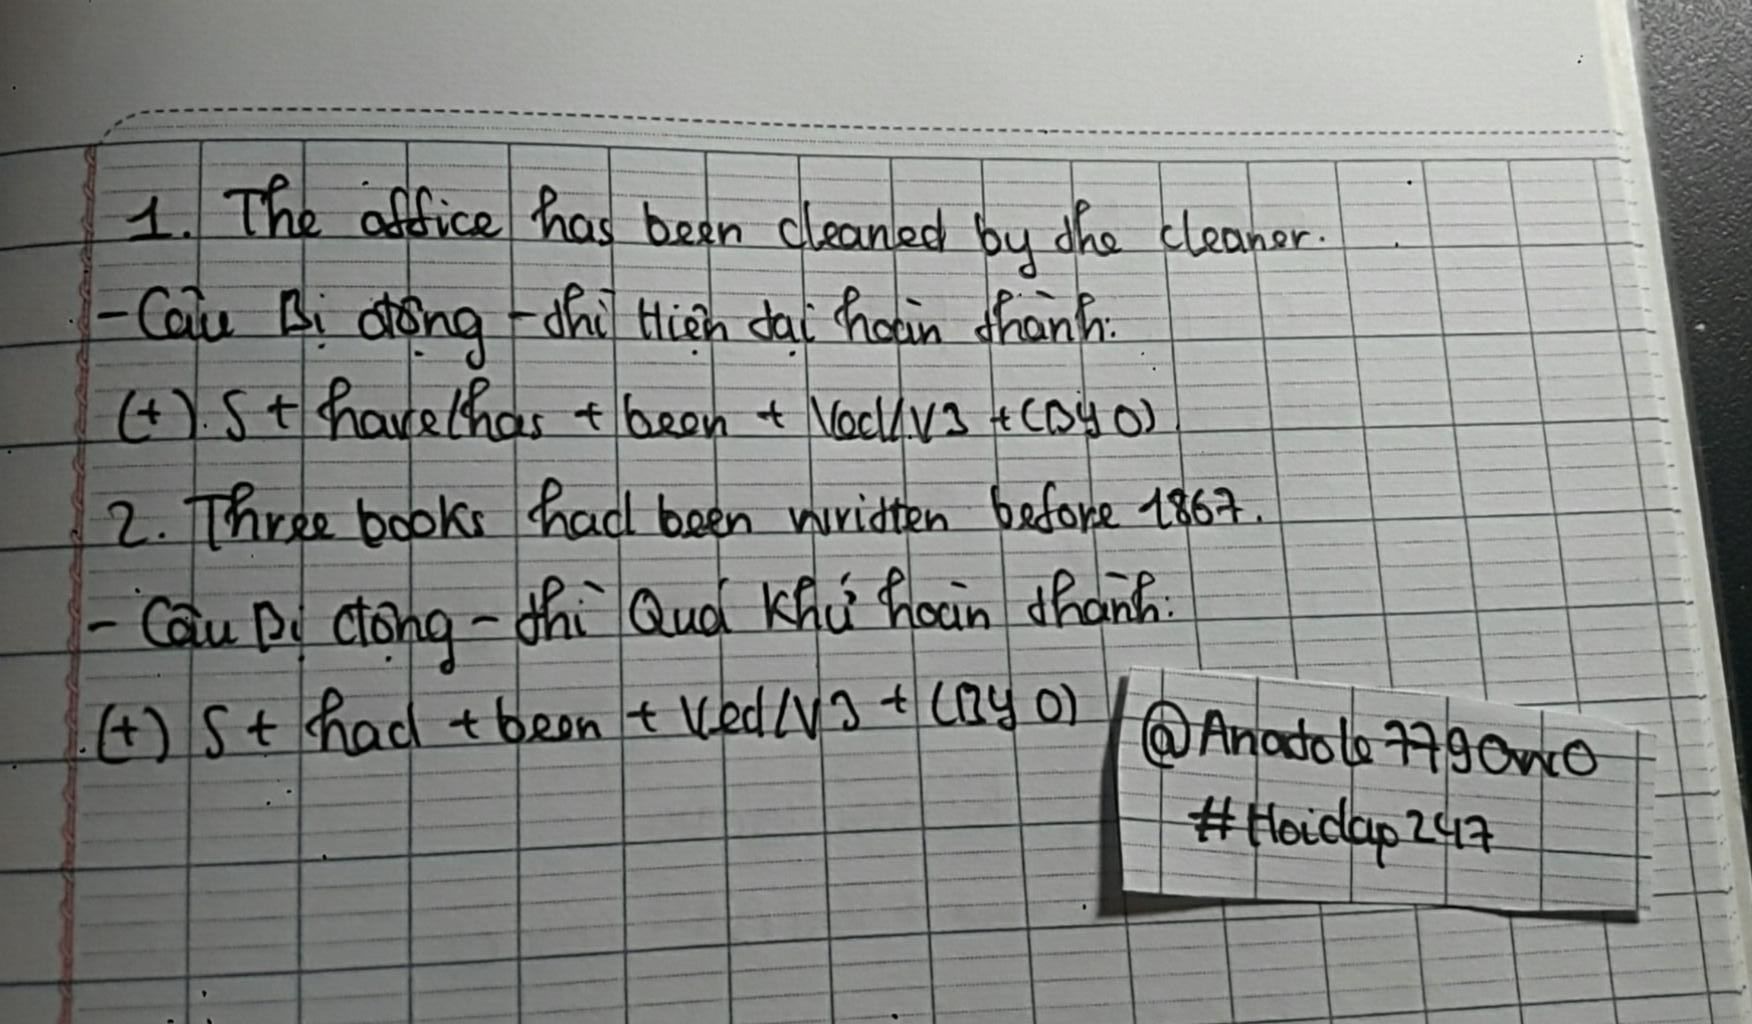 1. The office has been cleaned by the cleaner.
- Câu Bị động - thì Hiện tại hoàn thành:
(+) S + have/has + been + Ved/V3 + (By O)
2. Three books had been written before 1867.
- Câu Bị động - thì Quá khứ hoàn thành:
(+) S + had + been + Ved/V3 + (By O)
#Hoidap247